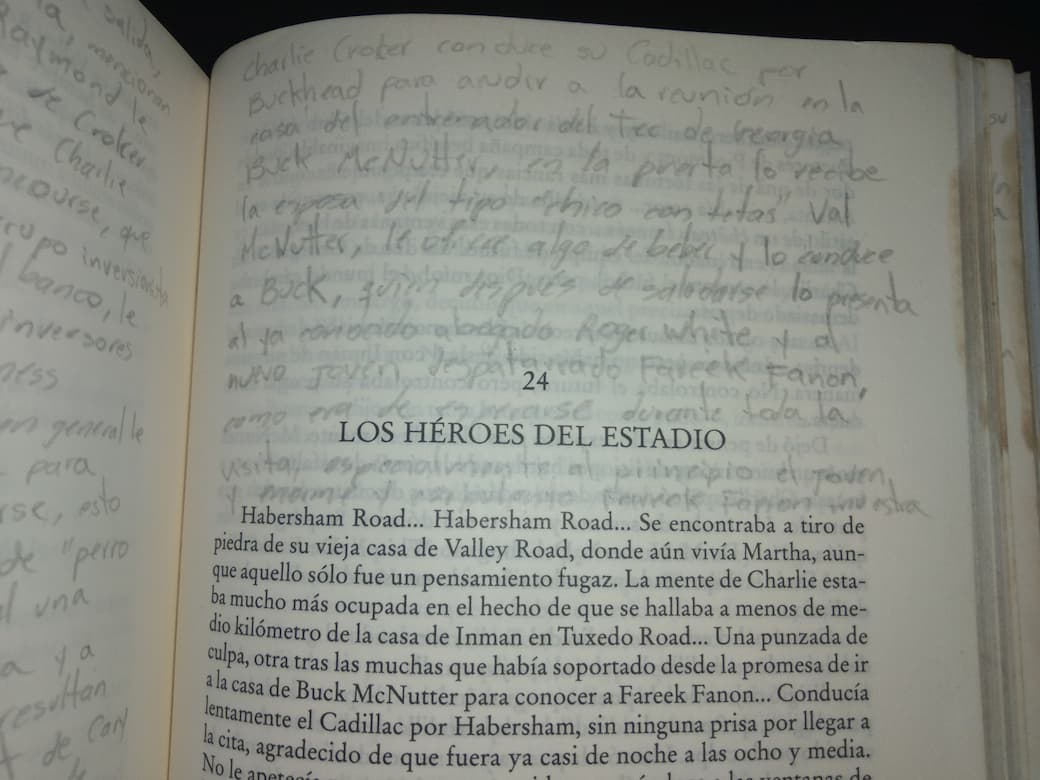 salida,
mencionan
Raymond le
de Croker
Charlie
que
grupo inversionista
banco, le
inversores
en general le
para
esto
de "perro
una
ya
resultan
de
Charlie Croker conduce su Cadillac por
Buckhead para acudir a la reunión en la
casa del entrenador del Tec de Georgia
Buck McNutter, en la puerta lo recibe
la esposa del tipo "chico con tetas" Val
McNutter, le ofrece algo de beber y lo conduce
a Buck, quién después de saludarse lo presenta
al ya conocido abogado Roger White y al
nuevo joven despatarrado Fareek Fanon,
24
como era de esperarse durante toda la
LOS HÉROES DEL ESTADIO
visita, especialmente al principio el joven
y Fareek Fanon muestra
Habersham Road... Habersham Road... Se encontraba a tiro de
piedra de su vieja casa de Valley Road, donde aún vivía Martha, aun-
que aquello sólo fue un pensamiento fugaz. La mente de Charlie esta-
ba mucho más ocupada en el hecho de que se hallaba a menos de me-
dio kilómetro de la casa de Inman en Tuxedo Road... Una punzada de
culpa, otra tras las muchas que había soportado desde la promesa de ir
a la casa de Buck McNutter para conocer a Fareek Fanon... Conducía
lentamente el Cadillac por Habersham, sin ninguna prisa por llegar a
la cita, agradecido de que fuera ya casi de noche a las ocho y media.
No le
su